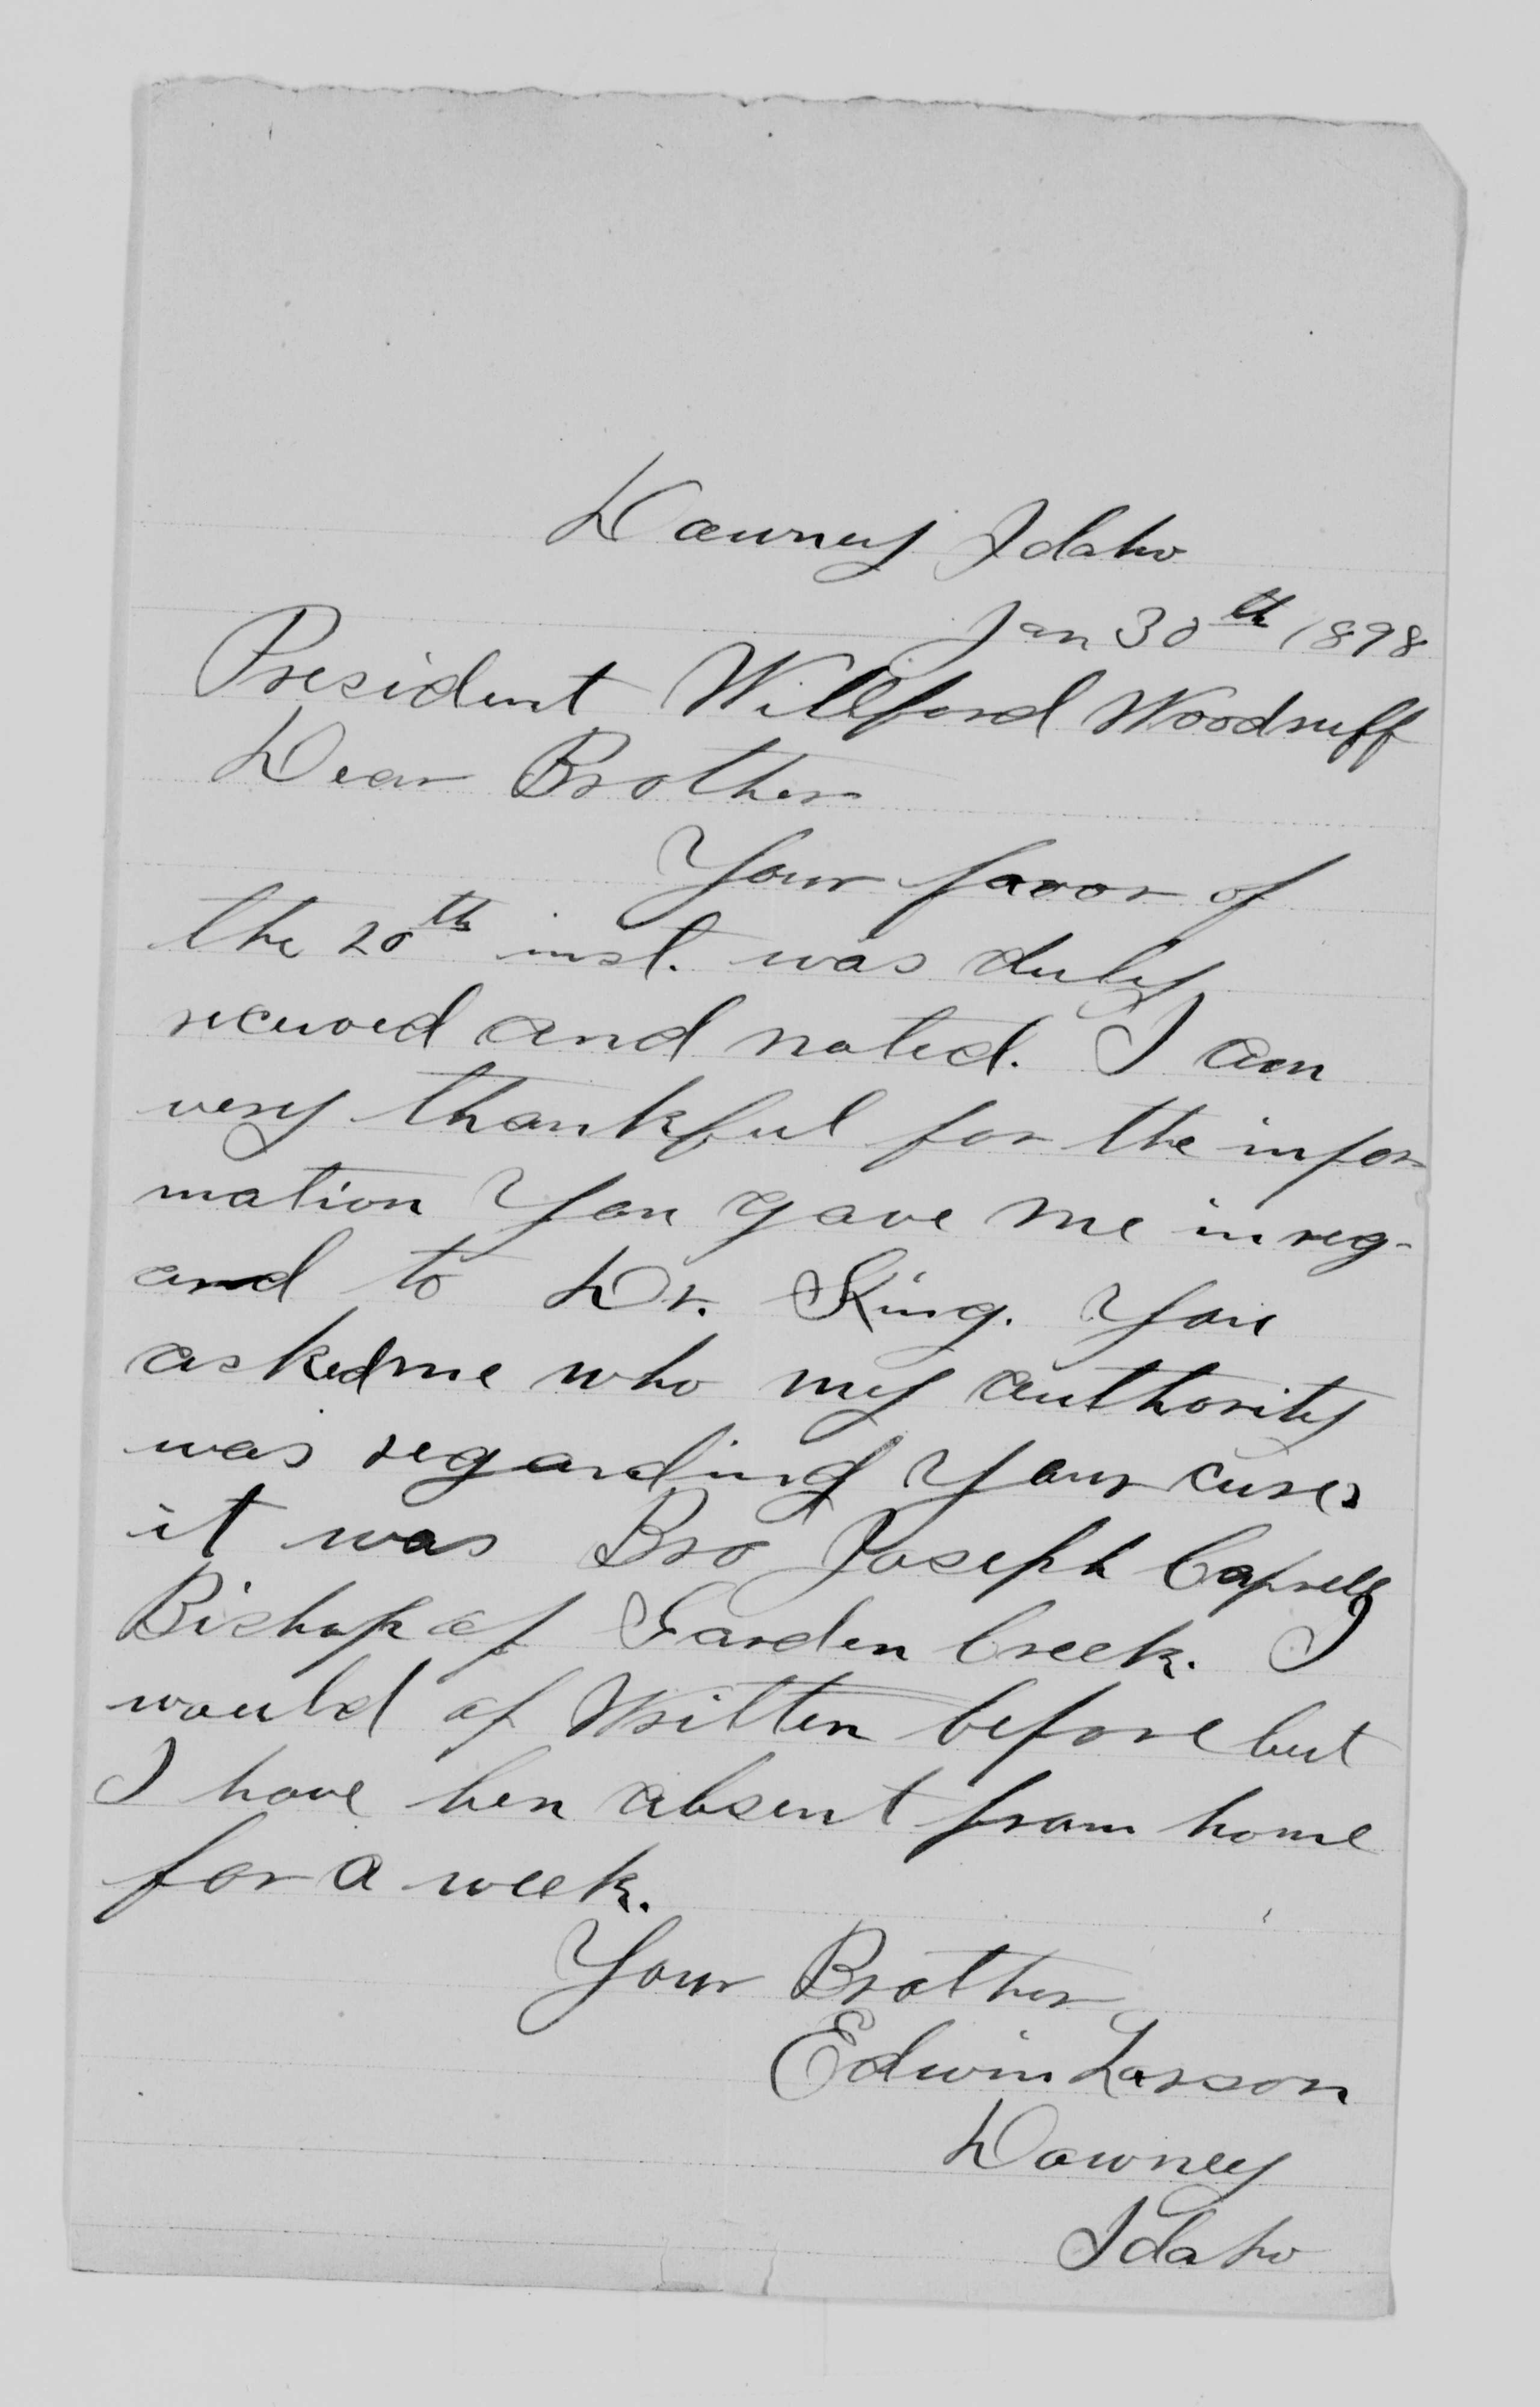 Downey Idaho
Jan 30th 1898
President Willford Woodruff
Dear Brother
Your favor of
the 20th inst. was duly
received and noted. I am
very thankful for the infor
mation You gave me in reg-
ard to Dr. King. You
asked me who my authority
was regarding Your cures
it was Bro Joseph Capell
Bishop of Garden Creek. I
would of Written before but
I have ben absent from home
for a week.
Your Brother
Edwin Larson
Downey
Idaho